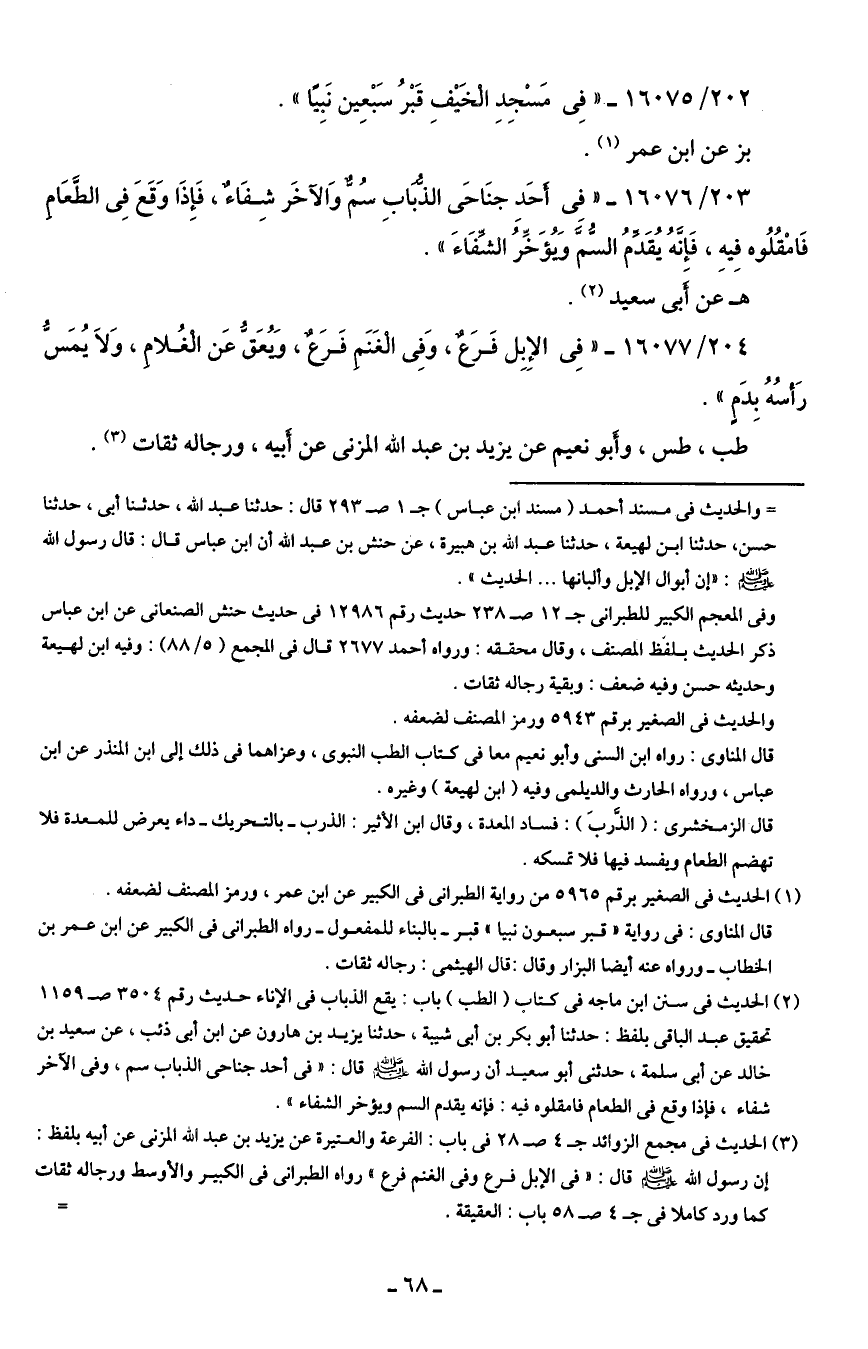 ٢٠٢/ ١٦٠٧٥ ـ « فِى مَسْجِدِ الْخَيْفِ قَبْرُ سَبْعِين نَبِيًا » .
بز عن ابن عمر (١) .
٢٠٣/ ١٦٠٧٦ ـ « فِى أَحَدِ جنَاحَى الذُّبَابِ سُمٌّ وَالآخَر شِـفَاءٌ ، فَإِذَا وَقَعَ فِى الطَّعَامِ
فَامْقُلُوه فِيهِ ، فَإِنَّهُ يُقَدِّمُ السُّمَّ وَيُؤَخِّرُ الشِّفَاءَ » .
هـ عن أَبى سعيد (٢) .
٢٠٤/ ١٦٠٧٧ ـ « فِى الإِبِلِ فَـرَعٌ ، وَفِى الْغَنَمِ فَـرَعٌ ، وَيُعَقُّ عَنِ الْغُـلامِ ، وَلاَ يُمَسُّ
رَأْسُهُ بِدَمٍ » .
طب ، طس ، وأَبو نعيم عن يزيد بن عبد الله المزنى عن أَبيه ، ورجاله ثقات (٣) .
= والحديث فى مـسند أحمـد ( مسند ابن عبـاس ) جـ ١ صـ ٢٩٣ قال : حدثنا عـبد الله ، حدثـنا أبى ، حدثنا
حسن، حدثنا ابـن لهيعة ، حدثنا عبـد الله بن هبيرة ، عن حنش بن عـبد الله أن ابن عباس قـال : قال رسول الله
ﷺ : «إن أبوال الإبل وألبانها ... الحديث » .
وفى المعجم الكبير للطبرانى جـ ١٢ صـ ٢٣٨ حديث رقم ١٢٩٨٦ فى حديث حنش الصنعانى عن ابن عباس
ذكر الحديث بـلفظ المصنف ، وقال محقـقه : ورواه أحمد ٢٦٧٧ قـال فى المجمع ( ٥/ ٨٨) : وفيه ابن لهـيعة
وحديثه حسن وفيه ضعف : وبقية رجاله ثقات .
والحديث فى الصغير برقم ٥٩٤٣ ورمز المصنف لضعفه .
قال المناوى : رواه ابن السنى وأبو نعيم معا فى كـتاب الطب النبوى ، وعزاهما فى ذلك إلى ابن المنذر عن ابن
عباس ، ورواه الحارث والديلمى وفيه ( ابن لهيعة ) وغيره .
قال الزمـخشرى : ( الذَّربَ ) : فسـاد المعدة ، وقال ابن الأثير : الذرب ـ بالتـحريك ـ داء يعرض للمـعدة فلا
تهضم الطعام ويفسد فيها فلا تمسكه .
(١) الحديث فى الصغير برقم ٥٩٦٥ من رواية الطبرانى فى الكبير عن ابن عمر ، ورمز المصنف لضعفه .
قال المناوى : فى رواية « قـبر سبعـون نبيا » قبر ـ بالبناء للمفعـول ـ رواه الطبرانى فى الكبير عن ابن عـمر بن
الخطاب ـ ورواه عنه أيضا البزار وقال :قال الهيثمى : رجاله ثقات .
(٢) الحديث فى سنن ابن ماجه فى كـتاب ( الطب ) باب : يقع الذباب فى الإناء حـديث رقم ٣٥٠٤ صـ ١١٥٩
تحقيق عبـد الباقى بلفظ : حدثنا أبو بكر بن أبى شيبة ، حدثنا يزيـد بن هارون عن ابن أبى ذئب ، عن سعيد بن
خالد عن أبى سلمة ، حدثنى أبو سعيـد أن رسول الله ﷺ قال : « فى أحد جناحى الذباب سم ، وفى الآخر
شفاء ، فإذا وقع فى الطعام فامقلوه فيه : فإنه يقدم السم ويؤخر الشفاء » .
(٣) الحديث فى مجمع الزوائد جـ ٤ صـ ٢٨ فى باب : الفرعة والعـتيرة عن يزيد بن عبد الله المزنى عن أبيه بلفظ :
إن رسول الله ﷺ قال : « فى الإبل فـرع وفى الغنم فرع » رواه الطبرانى فى الكبيـر والأوسط ورجاله ثقات
كما ورد كاملا فى جـ ٤ صـ ٥٨ باب : العقيقة .
=
ـ ٦٨ ـ